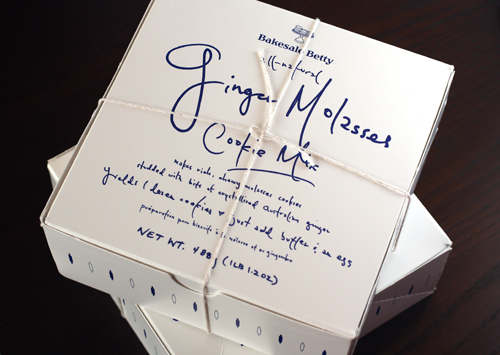 Bakesale Betty
all-natural
Ginger Molasses
Cookie Mix
makes rich, chewy molasses cookies
studded with bits of crystallized australian ginger
yields 1 dozen cookies just add butter & an egg
préparation pour biscuits à la mélasse et au gingembre
NET WT. 488g (1LB 1.2OZ)